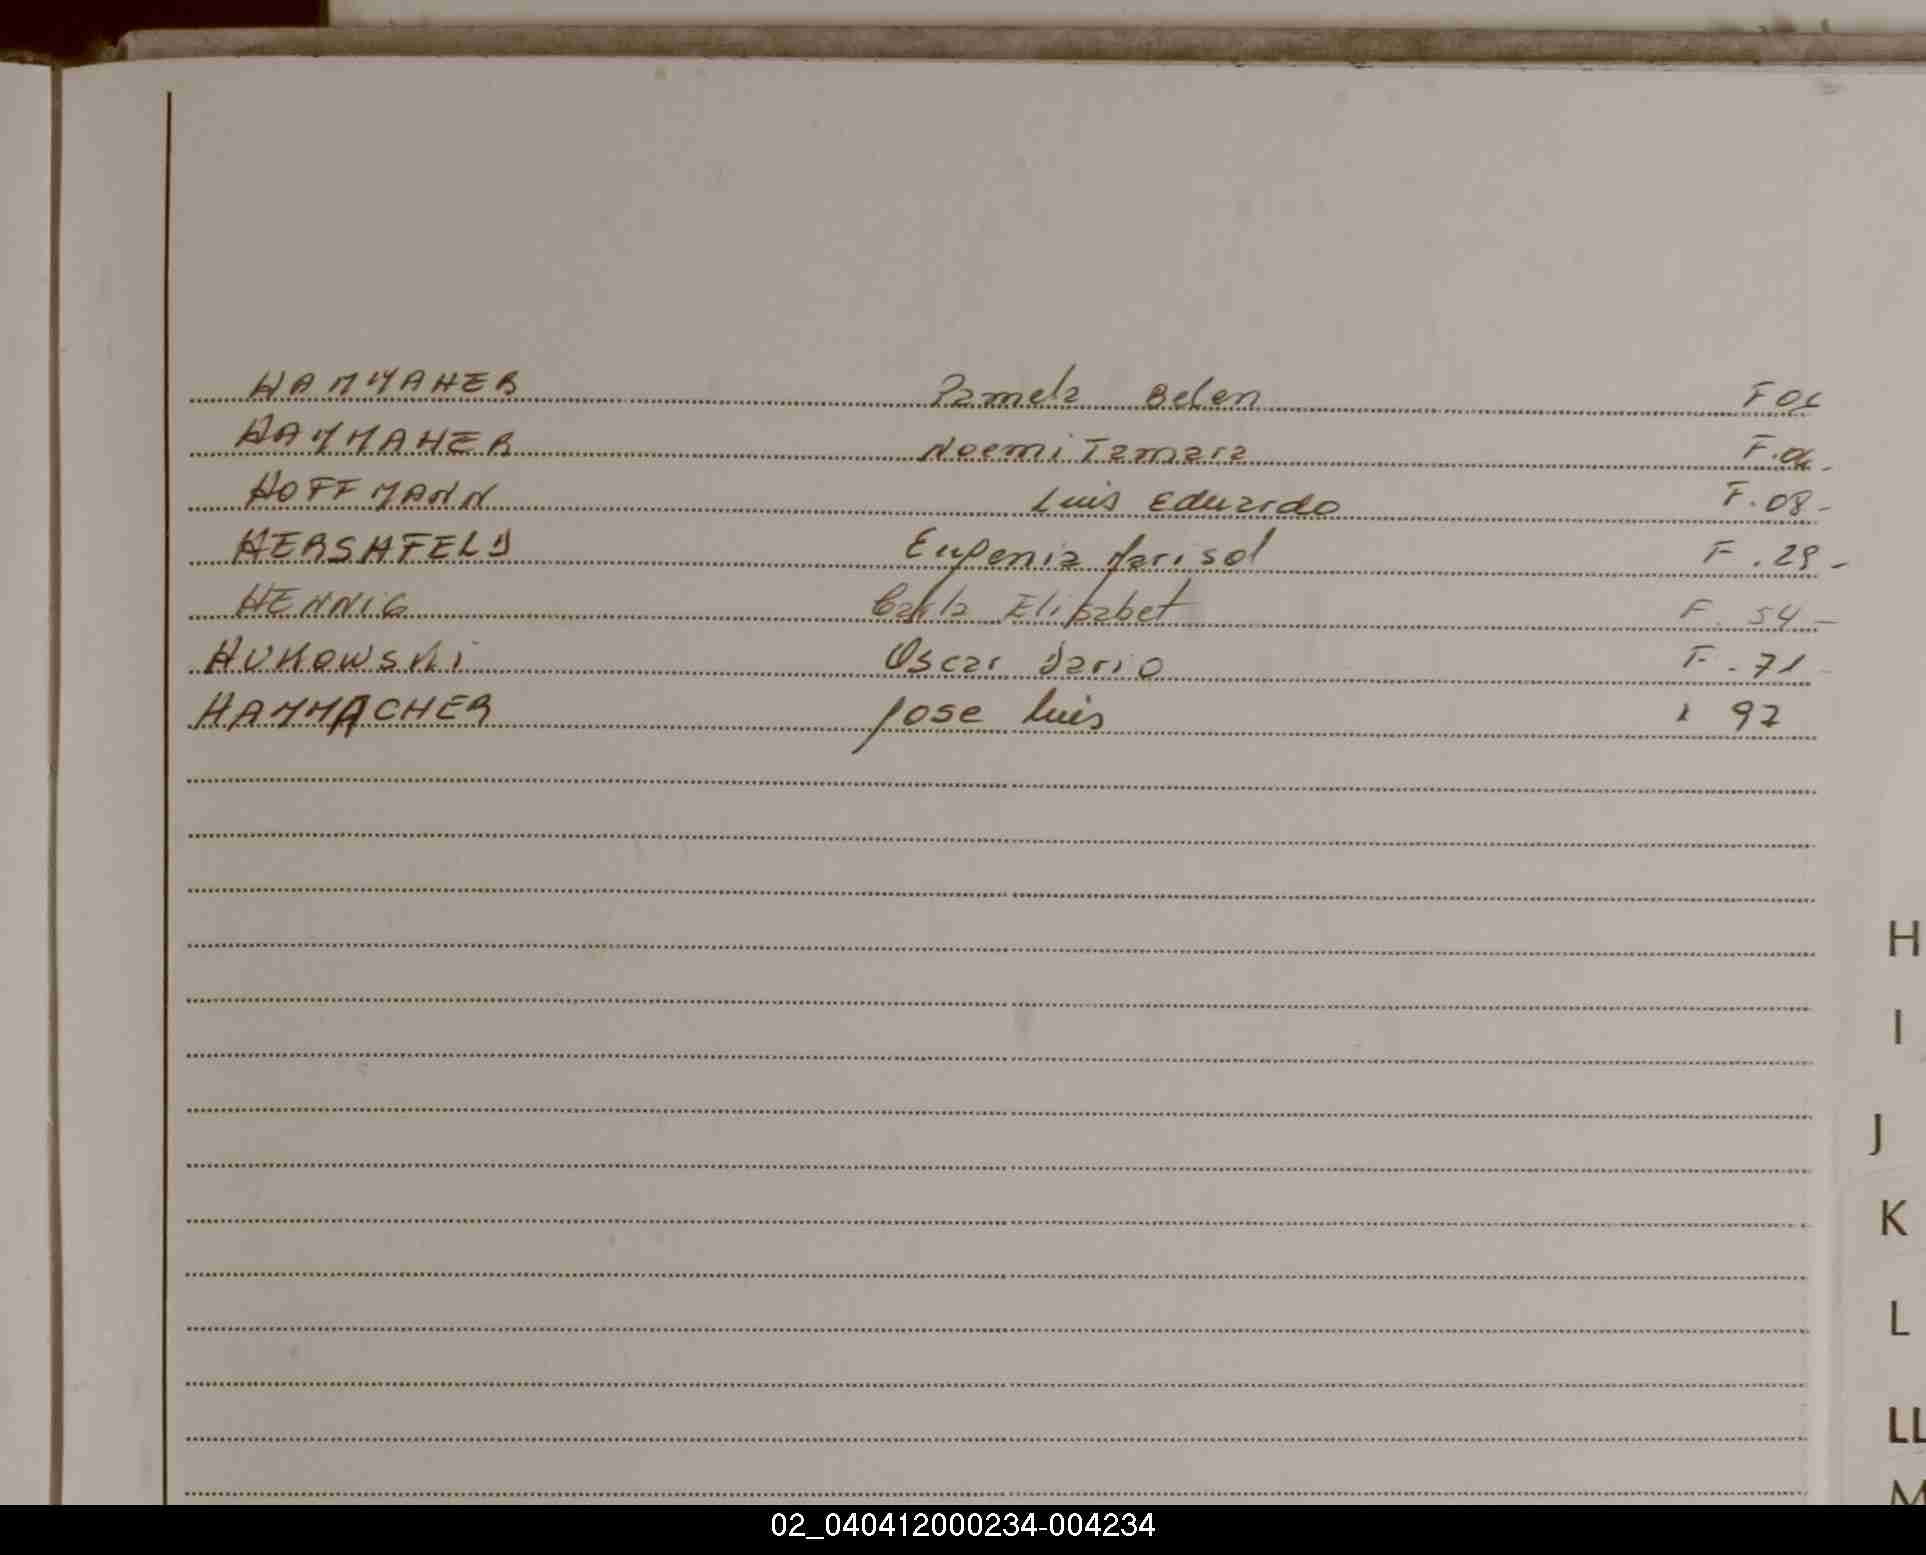 HAMMAHER Pamela Belen F 01
HAMMAHER Noemi Tamara F.06.
HOFFMANN Luis Eduardo F.08-
HERSHFELD Eugenia Marisol F.29-
HENNIG Carla Elisabet F.54-
HUKOWSKI Oscar Dario F.71-
HAMMACHER Jose Luis 97
H
I
J
K
L
LL
M
02_040412000234-004234